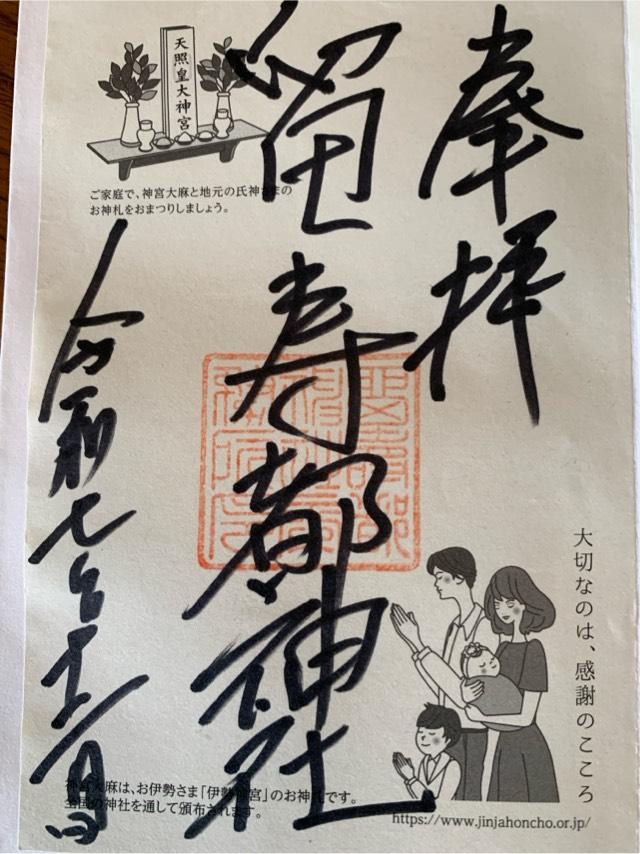 奉拝
留寿都神社
令和七年
天照皇大神宮
ご家庭で、神宮大麻と地元の氏神さまの
お神札をおまつりしましょう。
大切なのは、感謝のこころ
神宮大麻は、お伊勢さま「伊勢神宮」のお神札です。
全国の神社を通して頒布されます。
https://www.jinjahoncho.or.jp/